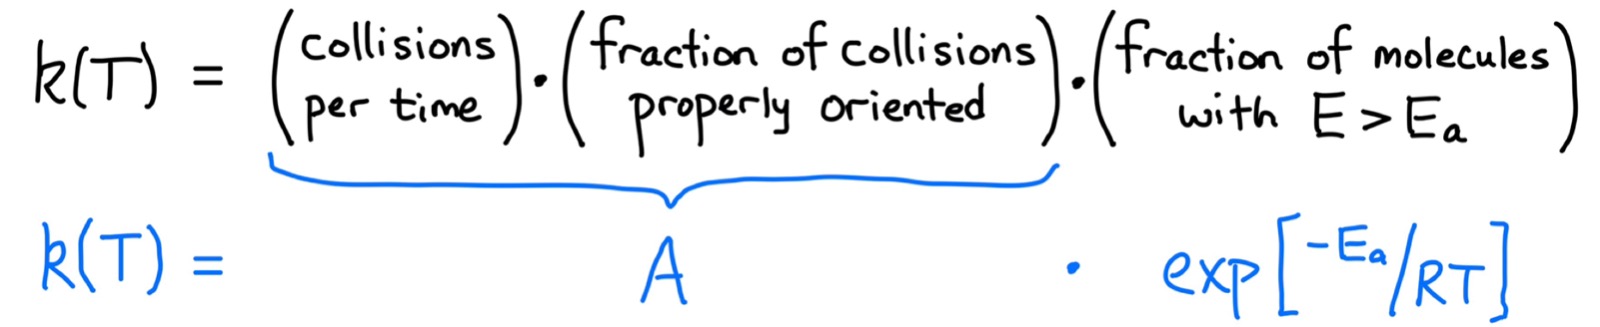 k(T) = (collisions per time) · (fraction of collisions properly oriented) · (fraction of molecules with E > Ea)
k(T) = A · exp[-Ea/RT]